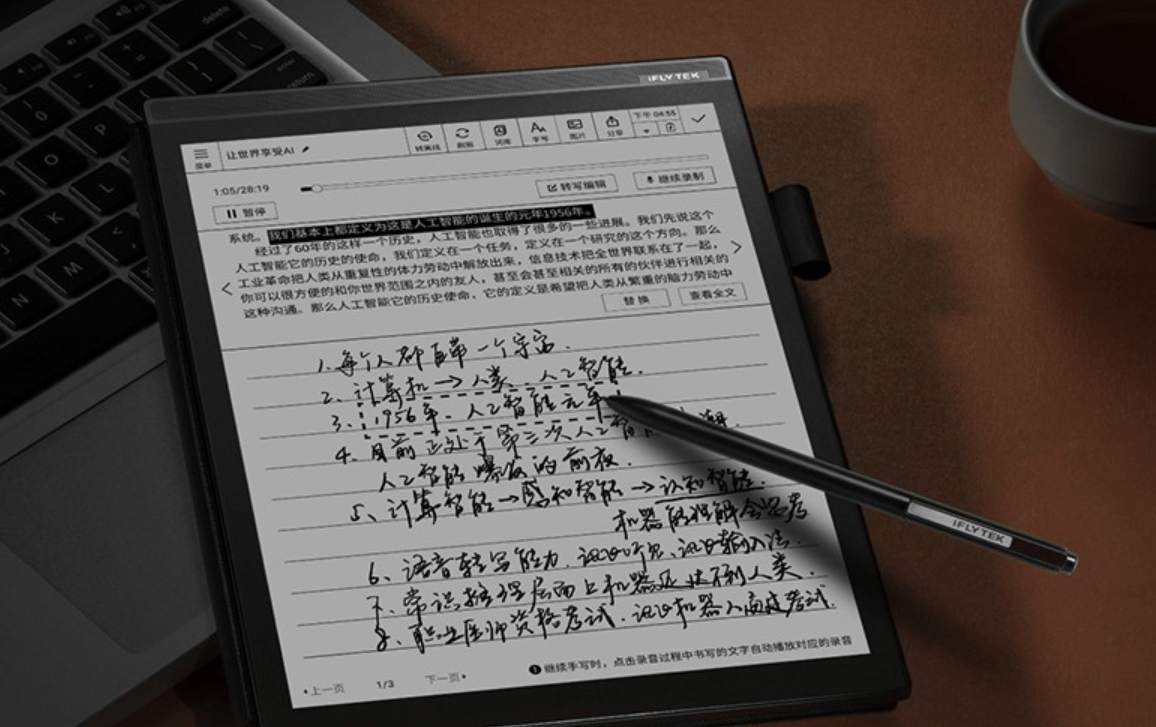 delete
return
P
L
K
M
N
iFLYTEK
菜单
让世界享受AI
转离线
刷新
词库
字号
图片
分享
下午 04:55
1:05/28:19
转写编辑
继续录制
暂停
系统。我们基本上都定义为这是人工智能的诞生的元年1956年。
经过了60年的这样一个历史，人工智能也取得了很多的一些进展。我们先说这个
人工智能它的历史的使命，我们定义在一个任务，定义在一个研究的这个方向。那么
工业革命把人类从重复性的体力劳动中解放出来，信息技术把全世界联系在了一起，
你可以很方便的和你世界范围之内的友人，甚至会甚至相关的所有的伙伴进行相关的
这种沟通。那么人工智能它的历史使命，它的定义是希望把人类从繁重的脑力劳动中
替换
查看全文
1.每个人都自带一个宇宙.
2、计算机→人类.人工智能.
3、1956年.人工智能元年
4、目前正处于第三次人工智 潮.
人工智能爆发的前夜.
5、计算智能→感知智能→认知智能.
机器能理解会思考
6、语音转写能力.讯飞听见、讯飞输入法.
7、常识推理层面上机器还达不到人类.
8、职业医师资格考试.讯飞机器人高过考试.
iFLYTEK
上一页
1/3
下一页
1 继续手写时，点击录音过程中书写的文字自动播放对应的录音